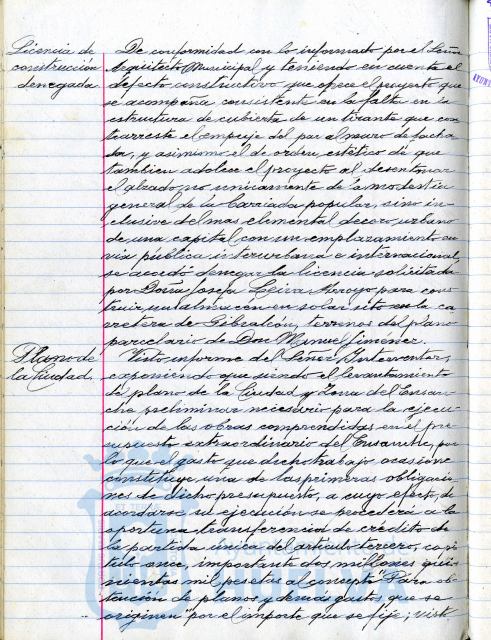 Licencia de
construcción
denegada
De conformidad con lo informado por el Señor
Arquitecto Municipal y teniendo en cuenta el
defecto constructivo que ofrece el proyecto que
se acompaña consistente en la falta en la
estructura de cubierta de un tirante que con
trarreste el empuje del par al muro de facha
da, y asimismo el de orden estético de que
tambien adolece el proyecto al desentonar
el alzado no unicamente de la modestia
general de la barriada popular, sino in-
clusive del mas elemental decoro urbano
de una capital con un emplazamiento en
via pública interurbana e internacional,
se acordó denegar la licencia solicitada
por Doña Josefa Leiva Arroyo para cons
truir un almacén en solar sito en la ca
rretera de Gibraleón, terrenos del plano
parcelario de Don Manuel Jimenez.
Plano de
la Ciudad.
Visto informe del Señor Interventor,
exponiendo que siendo el levantamiento
de plano de la Ciudad y Zona del Ensan-
che preliminar necesario para la ejecu-
ción de las obras comprendidas en el pre
supuesto extraordinario del Ensanche, por
lo que el gasto que dicho trabajo ocasione
constituye una de las primeras obligacio
nes de dicho presupuesto, a cuyo efecto, de
acordarse su ejecución se procederá a la
oportuna transferencia de crédito de
la partida única del articulo tercero, capi
tulo once, importante dos millones quin
nientas mil pesetas al concepto "Para ob-
tención de planos y demás gastos que se
originen" por el importe que se fije; visto